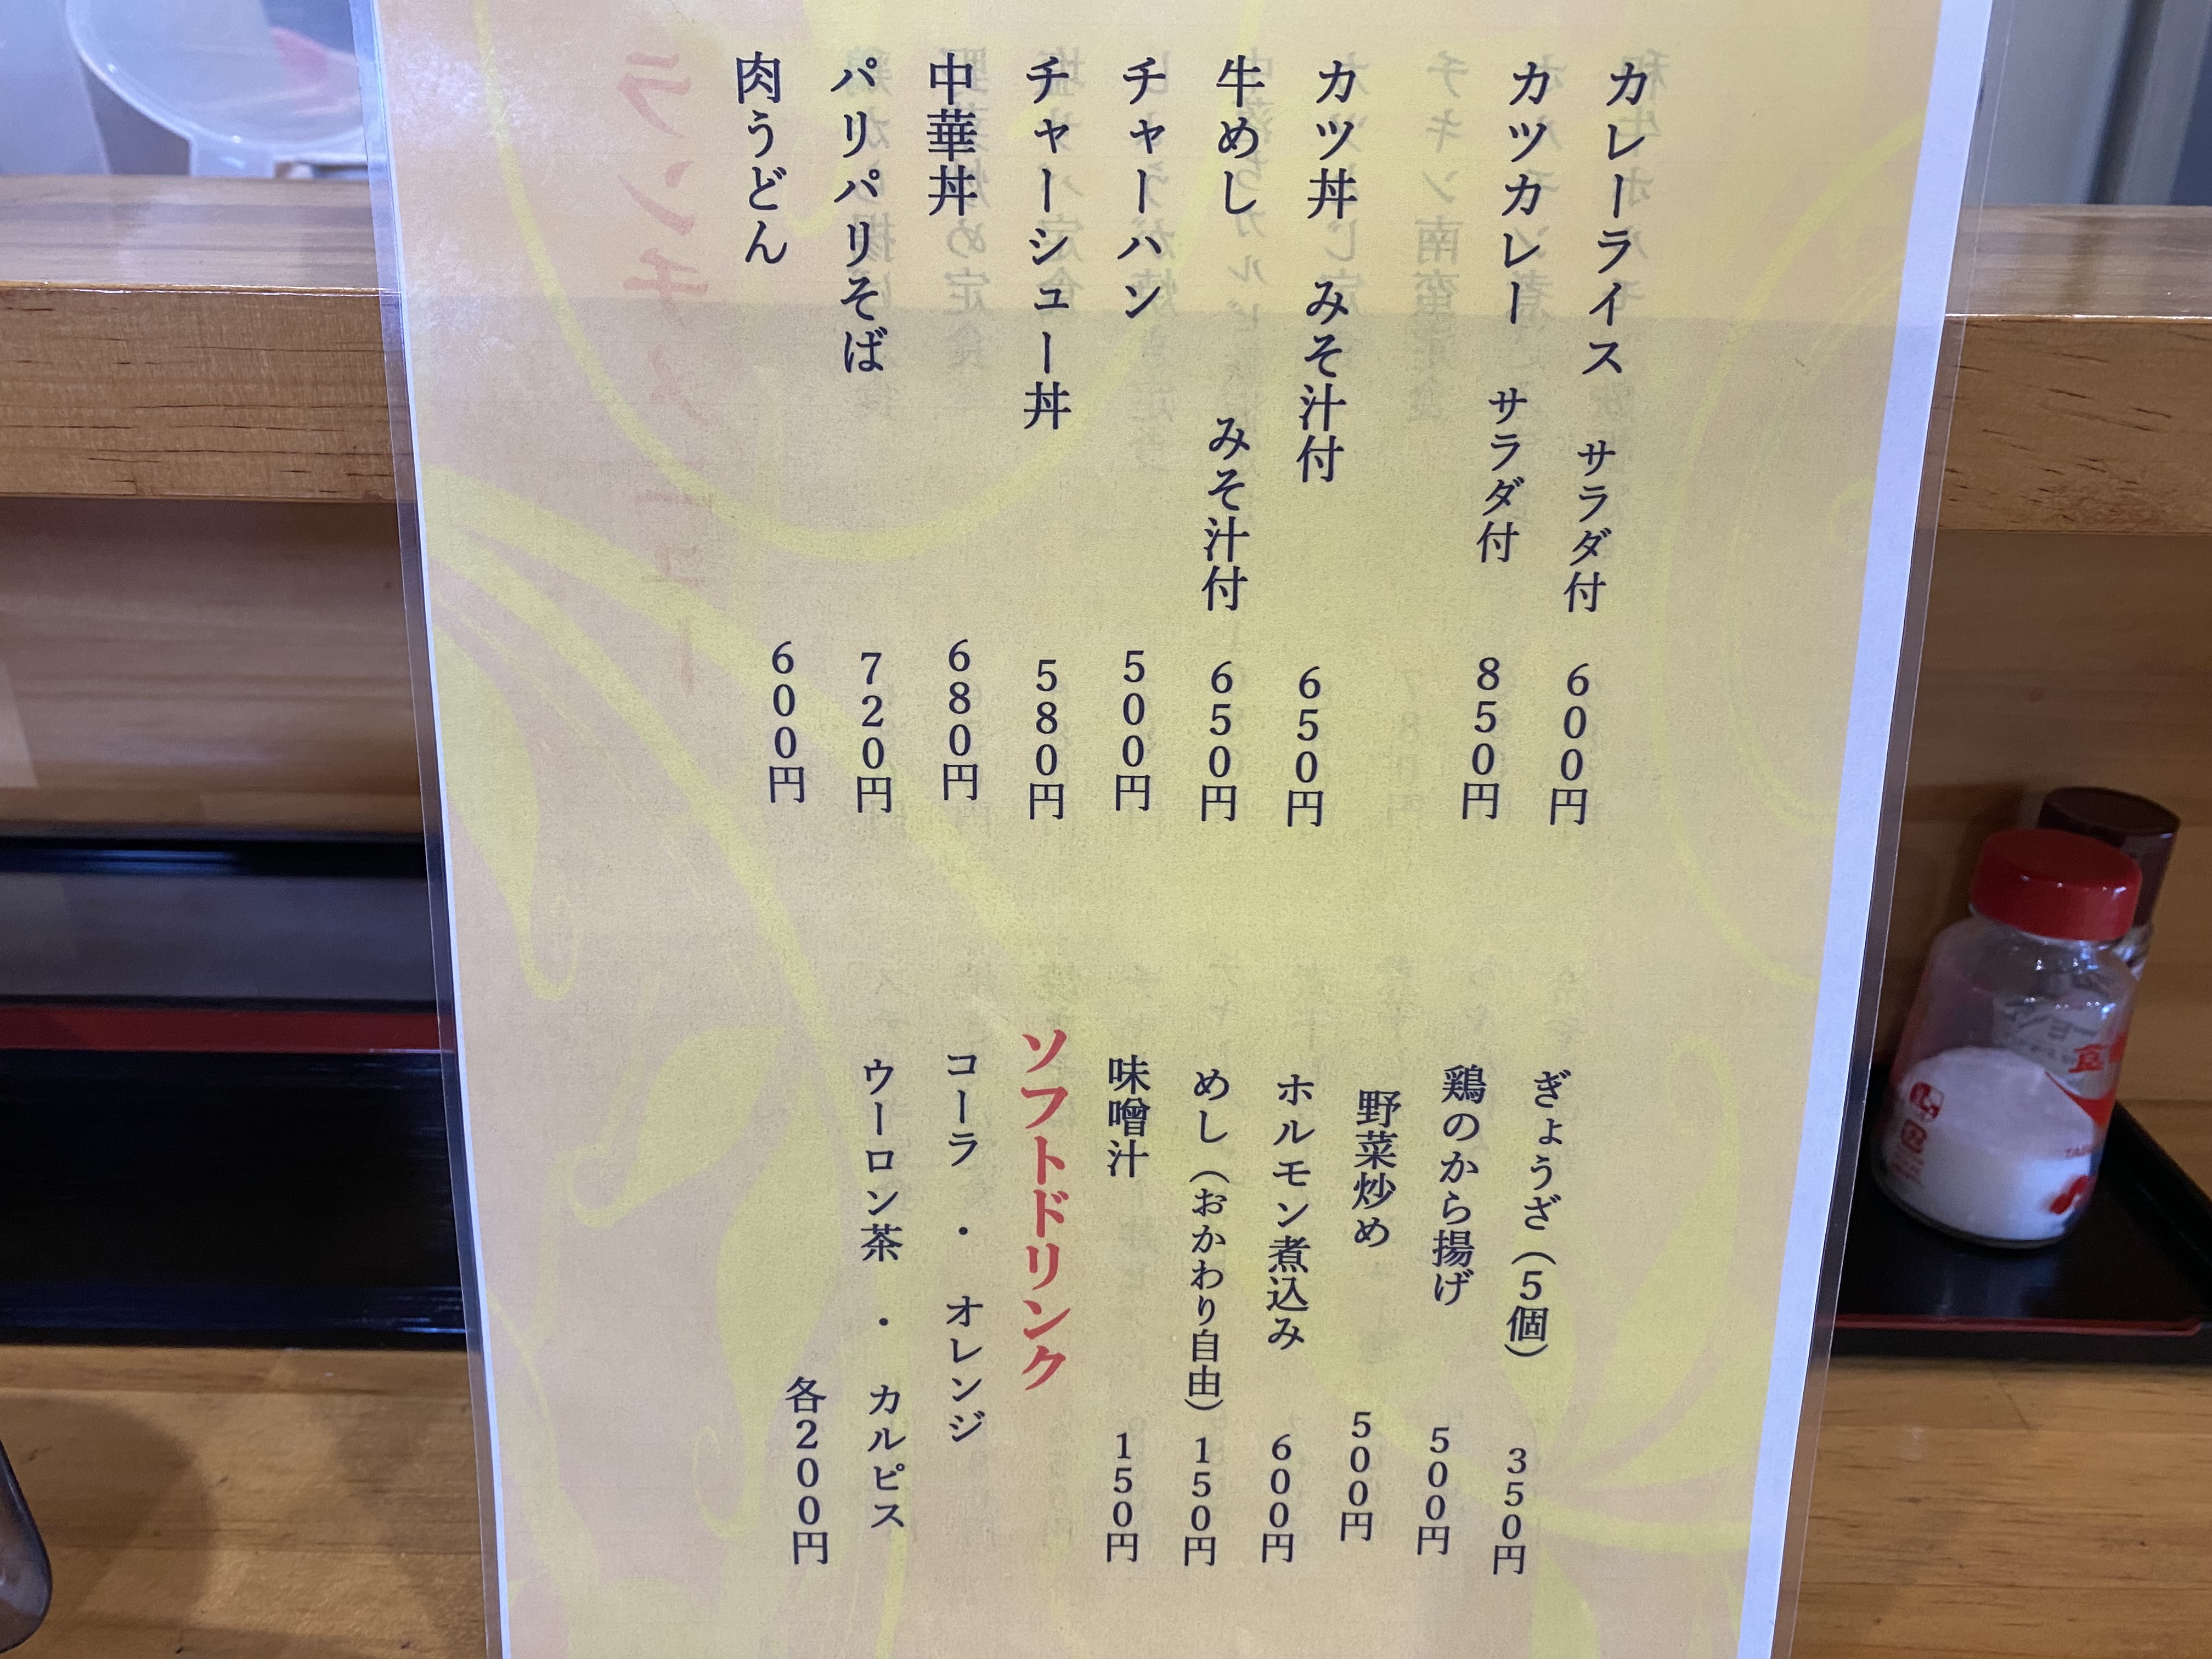 カレーライス サラダ付 600円
カツカレー サラダ付 850円
カツ丼 みそ汁付 650円
牛めし みそ汁付 650円
チャーハン 500円
チャーシュー丼 580円
中華丼 680円
パリパリそば 720円
肉うどん 600円
ぎょうざ（5個） 350円
鶏のから揚げ 500円
野菜炒め 500円
ホルモン煮込み 600円
めし（おかわり自由） 150円
味噌汁 150円
ソフトドリンク
コーラ ・ オレンジ
ウーロン茶 ・ カルピス
各200円